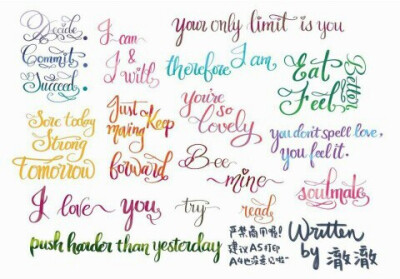 Decide.
Commit.
Succeed.
I can
&
I will!
your only limit is you
therefore I am
Eat
Better
Feel
Better
Sore today
Strong
Tomorrow
Just Keep
moving
forward
You're
so
lovely
Bee
mine
you don't spell love,
you feel it.
soulmate
I love you
try
read
push harder than yesterday
严禁商用喔!
建议A5打印
A4也没意见啦~
Written
by 澈澈